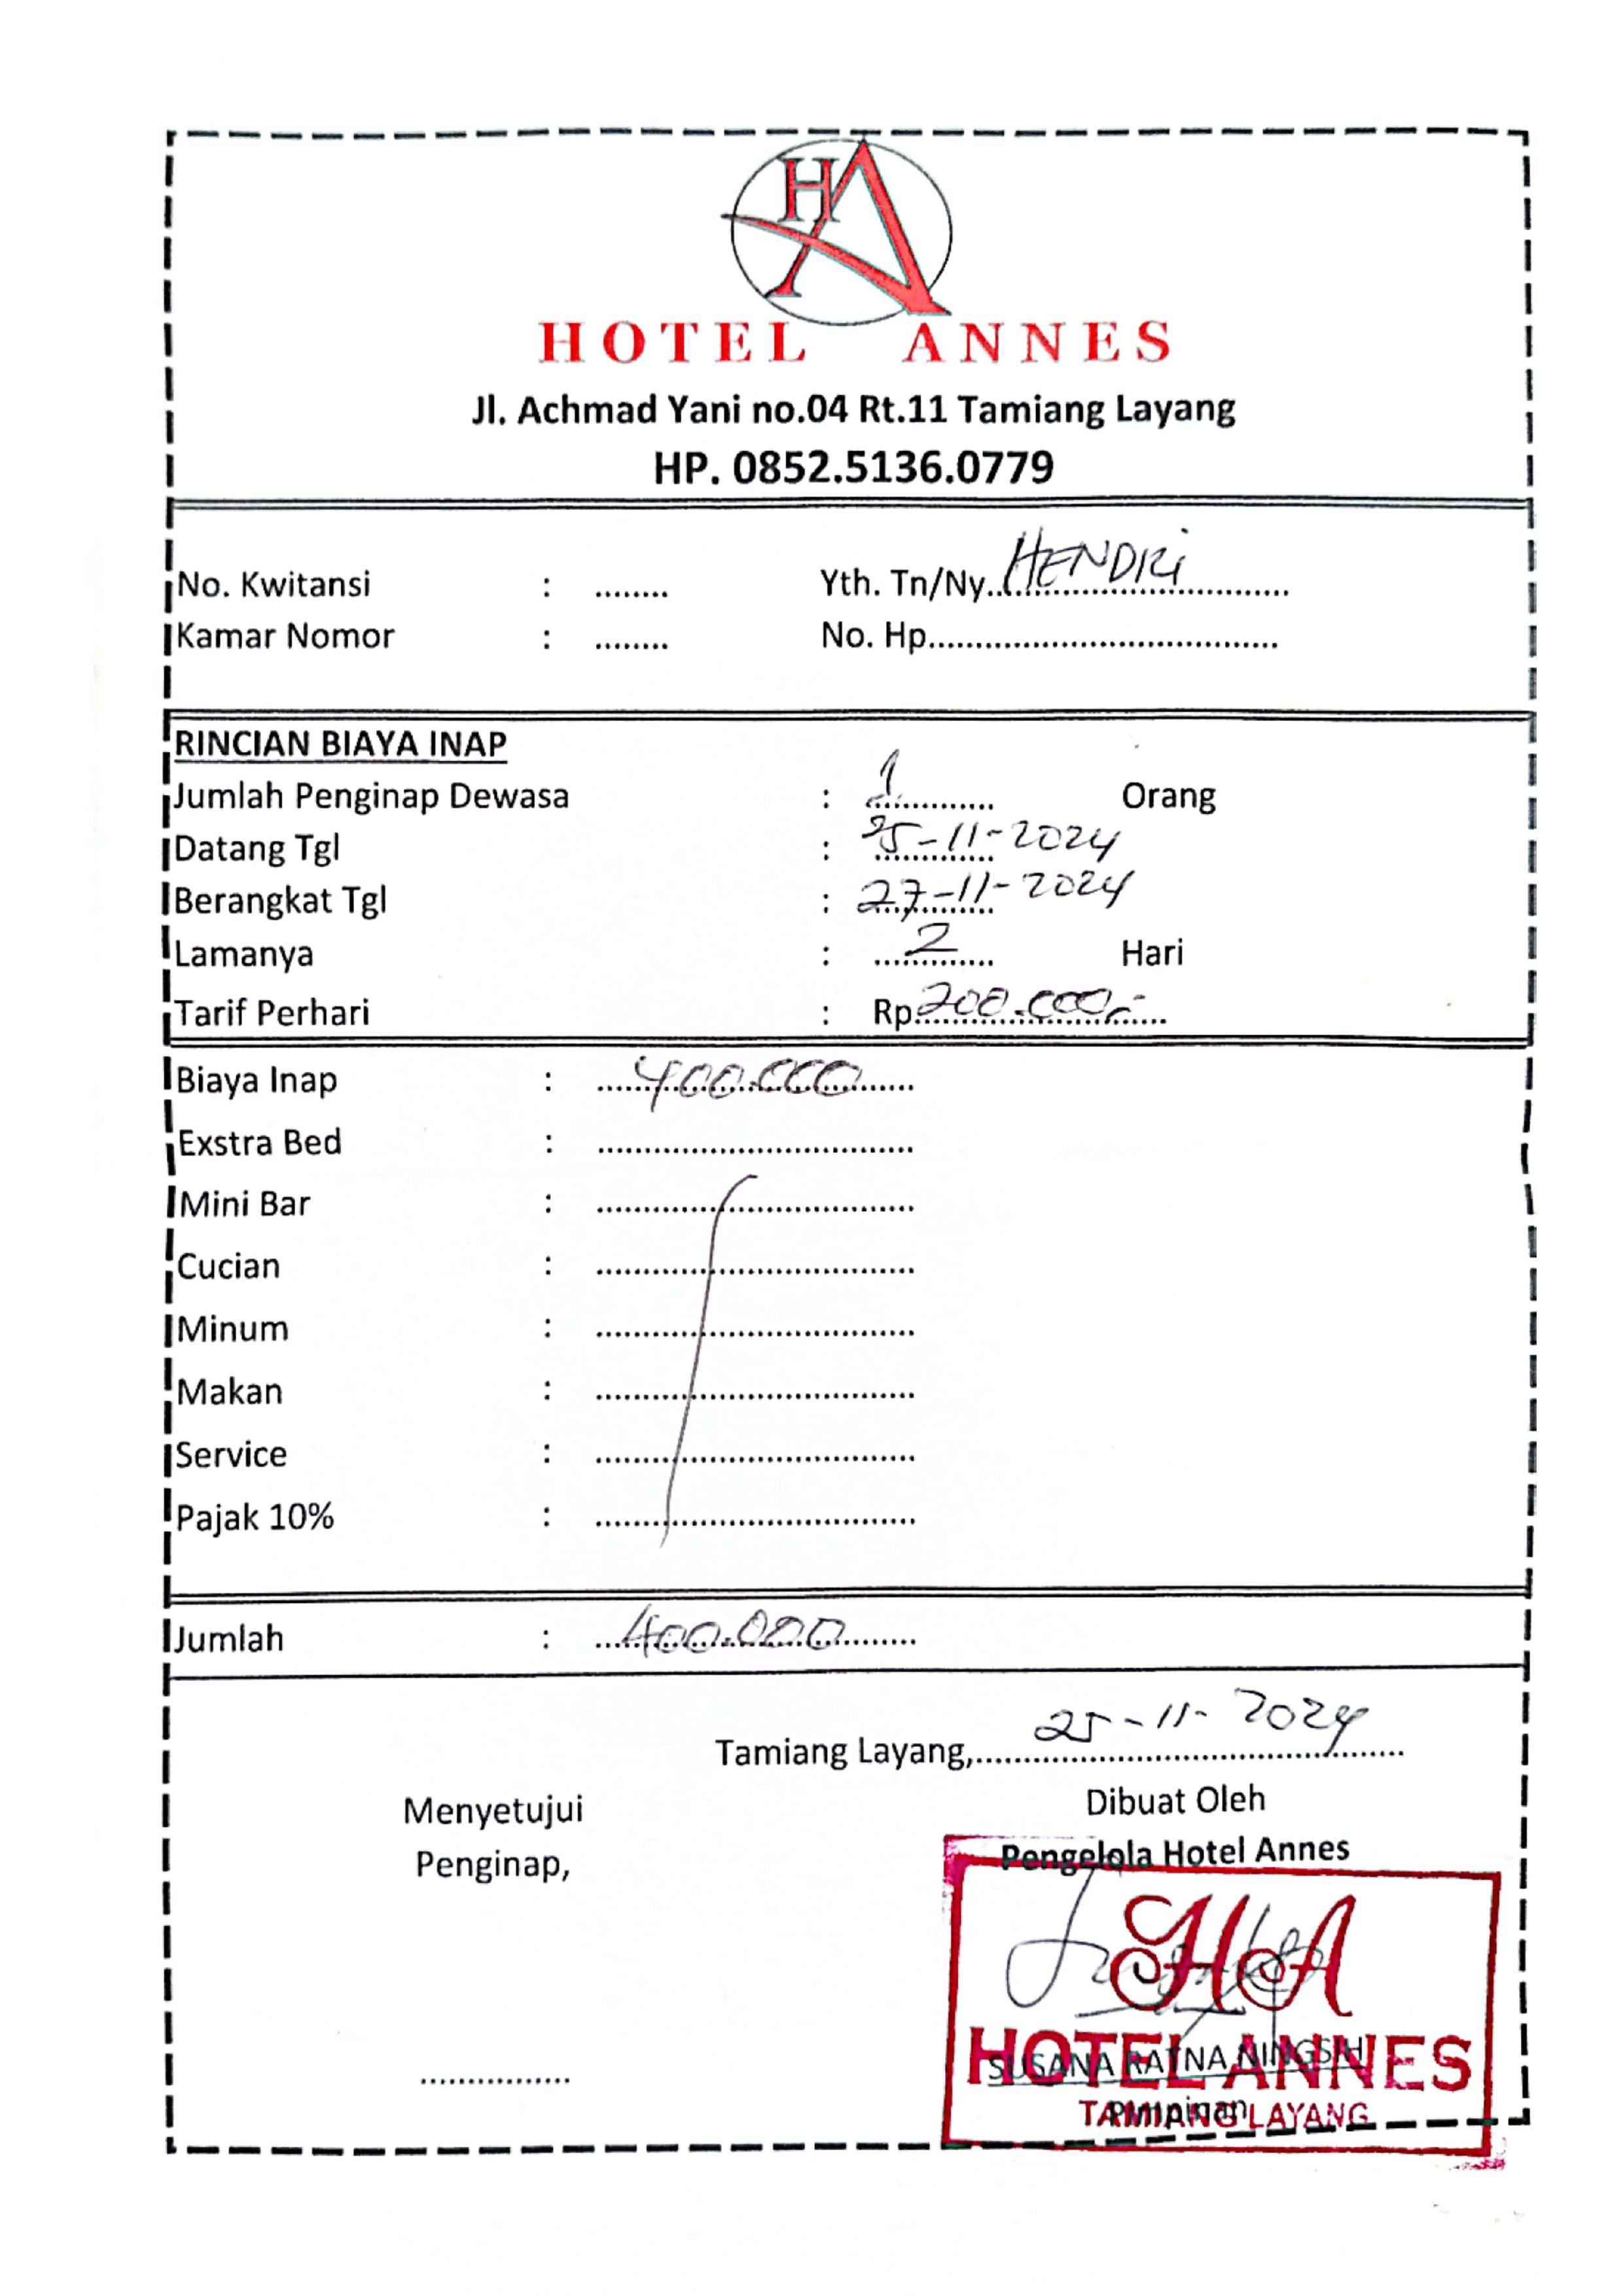 HA
HOTEL ANNES
Jl. Achmad Yani no.04 Rt.11 Tamiang Layang
HP. 0852.5136.0779
No. Kwitansi : ........ Yth. Tn/Ny..HENDRI
Kamar Nomor : ........ No. Hp......................................
RINCIAN BIAYA INAP
Jumlah Penginap Dewasa : 1 Orang
Datang Tgl : 25-11-2024
Berangkat Tgl : 27-11-2024
Lamanya : 2 Hari
Tarif Perhari : Rp 200.000,-
Biaya Inap : 400.000
Exstra Bed : ..................................
Mini Bar : ..................................
Cucian : ..................................
Minum : ..................................
Makan : ..................................
Service : ..................................
Pajak 10% : ..................................
Jumlah : 400.000
Tamiang Layang, 25-11-2024
Menyetujui
Penginap,
................
Dibuat Oleh
Pengelola Hotel Annes
HA
HOTEL ANNES
SUSANA RATNA NINGSIH
Pimpinan
TAMIANG LAYANG